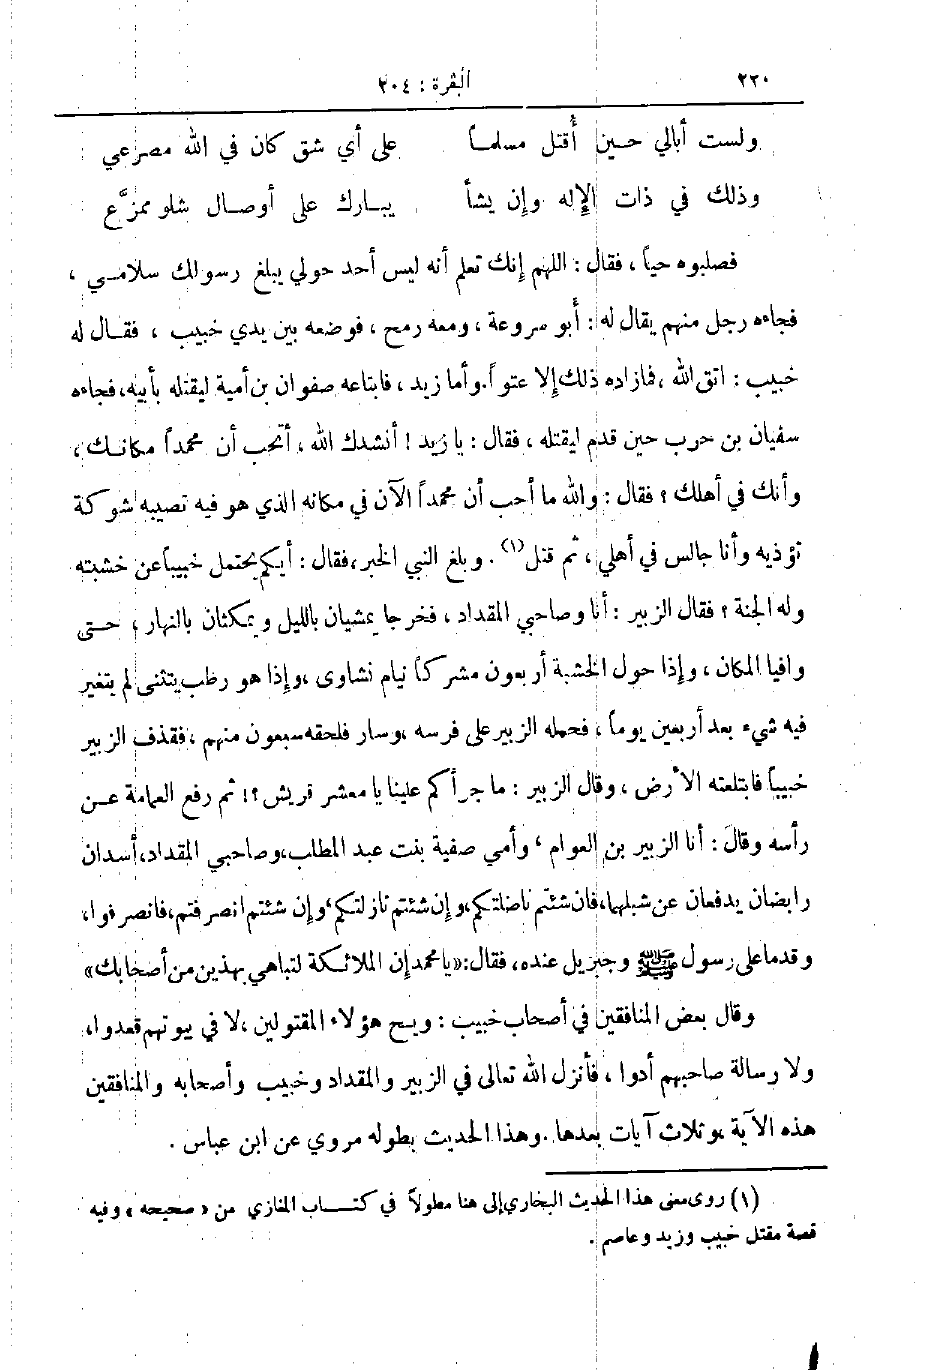 ٢٢٠
البقرة : ٢٠٤
ولست أبالي حـين أُقتل مسلمـاً على أي شق كان في الله مصرعي
وذلك في ذات الإله وإن يشأ يبـارك على أوصـال شلو ممزَّع
فصلبوه حياً ، فقال : اللهم إنك تعلم أنه ليس أحد حولي يبلغ رسولك سلامـي ،
فجاءه رجل منهم يقال له : أبو سروعة ، ومعه رمح ، فوضعه بين يدي خبيب ، فقـال له
خبيب : اتق الله ، فمازاده ذلك إلا عتواً. وأما زيد ، فابتاعه صفوان بن أمية ليقتله بأبيه، فجاءه
سفيان بن حرب حين قدم ليقتله ، فقال : يا زيد ! أنشدك الله ، أتحب أن محمداً مكانـك ،
وأنك في أهلك ؟ فقال : والله ما أحب أن محمداً الآن في مكانه الذي هو فيه تصيبه شوكة
تؤذيه وأنا جالس في أهلي ، ثم قتل (١) . وبلغ النبي الخبر ، فقال : أيكم يحتمل خبيباً عن خشبته
وله الجنة ؟ فقال الزبير : أنا وصاحبي المقداد ، فخرجا يمشيان بالليل ويمكثان بالنهار ، حـتى
وافيا المكان ، وإذا حول الخشبة أربعون مشركاً نيام نشاوى ، وإذا هو رطب يتثنى لم يتغير
فيه شيء بعد أربعين يوماً ، فحمله الزبير على فرسه ، وسار فلحقه سبعون منهم ، فقذف الزبير
خبيباً فابتلعته الأرض ، وقال الزبير : ما جرأكم علينا يا معشر قريش ؟! ثم رفع العمامة عـن
رأسه وقال : أنا الزبير بن العوام ، وأمي صفية بنت عبد المطلب، وصاحبي المقداد، أسدان
رابضان يدفعان عن شبلهما، فان شئتم ناضلتكم، وإن شئتم نازلتكم، وإن شئتم انصرفتم، فانصرفوا،
وقدما على رسول ﷺ وجبريل عنده، فقال: «يا محمد إن الملائكة لتباهي بهذين من أصحابك»
وقال بعض المنافقين في أصحاب خبيب : ويـح هؤلاء المقتولين ، لا في بيوتهم قعدوا ،
ولا رسالة صاحبهم أدوا ، فأنزل الله تعالى في الزبير والمقداد وخبيب وأصحابه والمنافقين
هذه الآية ، وثلاث آيات بعدها . وهذا الحديث بطوله مروي عن ابن عباس .
(١) روى معنى هذا الحديث البخاري إلى هنا مطولاً في كتـاب المغازي من «صحيحه» وفيه
قصة مقتل خبيب وزيد وعاصم .